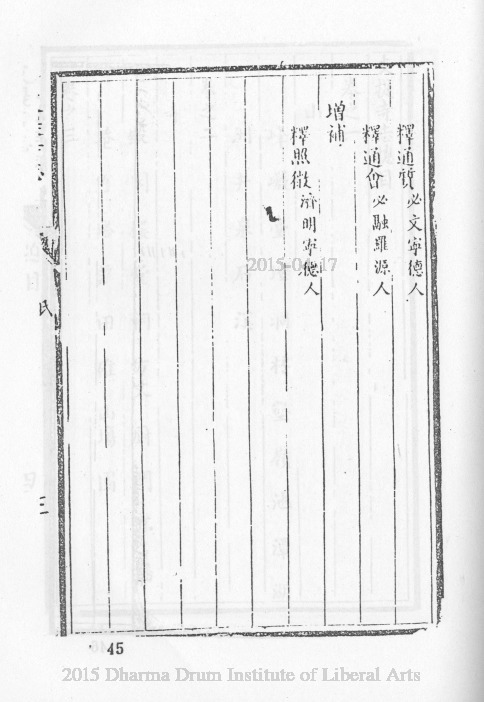 釋通 必文寧德人
釋通會 必融羅源人
增補
釋照徹 濟明寧德人
氏
三
45
2015-04-17
2015 Dharma Drum Institute of Liberal Arts